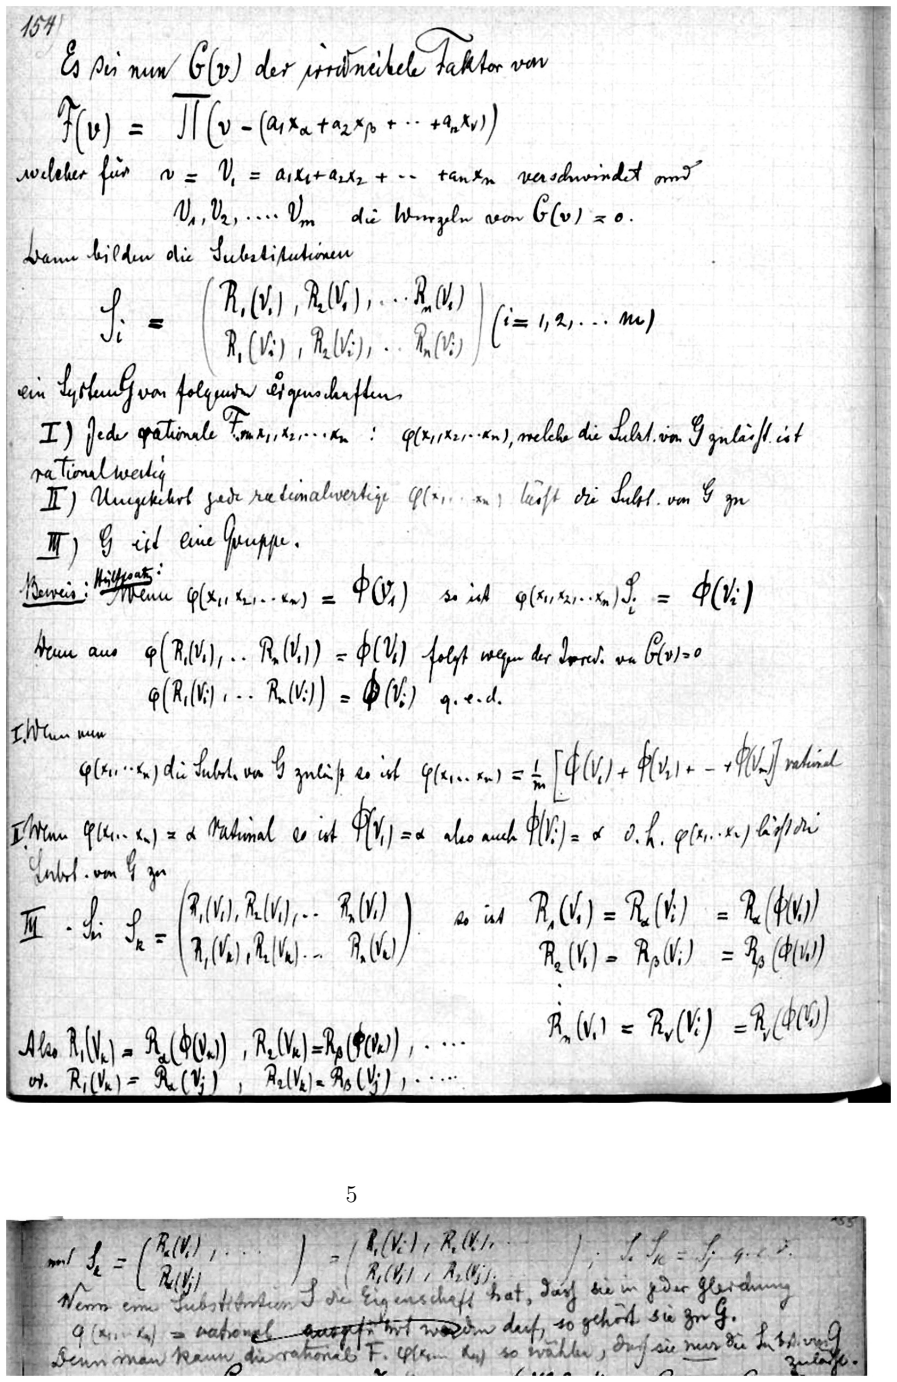 154
Es sei nun G(v) der irreducibele Faktor von
F(v) = Π(v - (a₁x_α + a₂x_β + ·· + a_n x_ν))
welcher für v = V₁ = a₁x₁ + a₂x₂ + ·· + a_n x_n verschwindet und
V₁, V₂, .... V_m die Wurzeln von G(v) = 0.
Dann bilden die Substitutionen
S_i = ( R₁(V₁), R₂(V₁), ... R_n(V₁)
R₁(V_i), R₂(V_i), .. R_n(V_i) ) (i = 1, 2, ... m)
ein System G von folgenden Eigenschaften
I) Jede rationale F. von x₁, x₂, ... x_n : φ(x₁, x₂ ... x_n), welche die Subst. von G zuläßt ist
rationalwertig
II) Umgekehrt jede rationalwertige φ(x₁ .. x_n) läßt die Subst. von G zu
III) G ist eine Gruppe.
Beweis: Hülfssatz: Wenn φ(x₁, x₂, ... x_n) = Φ(V₁) so ist φ(x₁, x₂, ... x_n)S_i = Φ(V_i)
Denn aus φ(R₁(V₁), .. R_n(V₁)) = Φ(V₁) folgt wegen der Irred. von G(v) = 0
φ(R₁(V_i), ... R_n(V_i)) = Φ(V_i) q.e.d.
I. Wenn nun
φ(x₁, ·· x_n) die Subst. von G zuläßt so ist φ(x₁ ... x_n) = 1/m [Φ(V₁) + Φ(V₂) + - + Φ(V_m)] rational
II. Wenn φ(x₁ .. x_n) = α rational so ist Φ(V₁) = α also auch Φ(V_i) = α d.h. φ(x₁ .. x_n) läßt die
Subst. von G zu
III · Sei S_k = ( R₁(V₁), R₂(V₁), .. R_n(V₁)
R₁(V_k), R₂(V_k) ... R_n(V_k) ) so ist R₁(V₁) = R_α(V_i) = R_α(Φ(V₁))
R₂(V₁) = R_β(V_i) = R_β(Φ(V₁))
⋮
R_n(V₁) = R_ν(V_i) = R_ν(Φ(V₁))
Also R₁(V_k) = R_α(Φ(V_k)), R₂(V_k) = R_β(Φ(V_k)), ....
od. R₁(V_k) = R_α(V_j), R₂(V_k) = R_β(V_j), .....
5
155
und S_k = ( R_α(V_i), ....
R_α(V_j) ) = ( R₁(V_i), R₂(V_i), ..
R₁(V_j), R₂(V_j), ) ; S_i S_k = S_j q.e.d.
Wenn eine Substitution S die Eigenschaft hat, daß sie in jeder Gleichung
φ(x₁ ... x_n) = rational ausgeführt werden darf, so gehört sie zu G.
Denn man kann die rationale F. φ(x₁ ... x_n) so wählen, daß sie nur die Subst. von G
zuläßt.